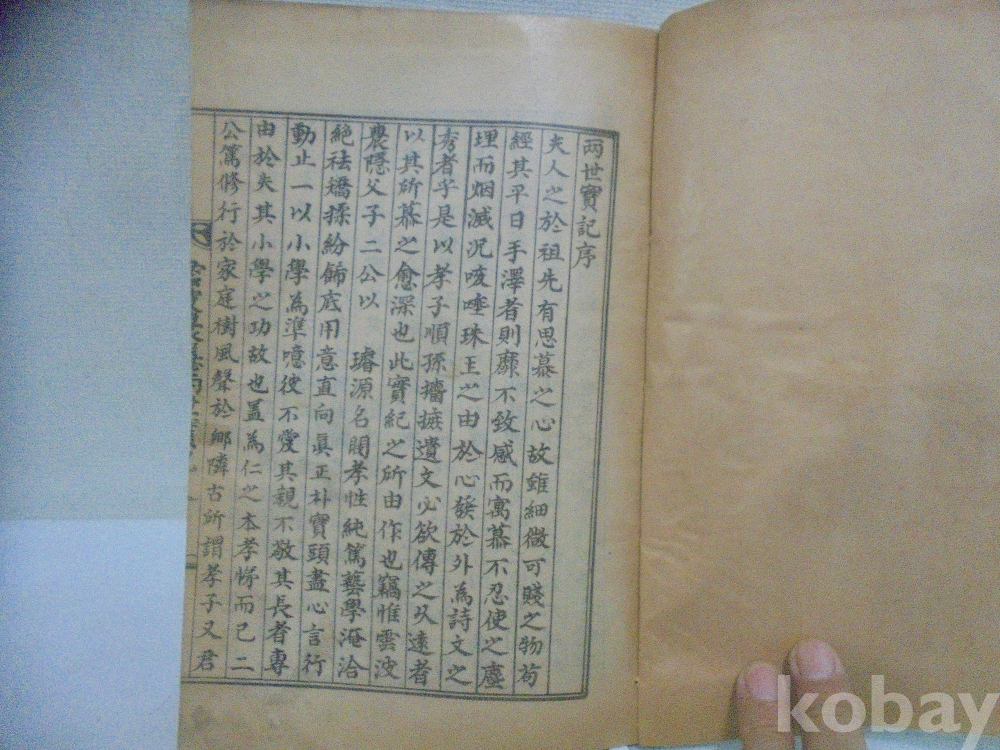 兩世實記序
夫人之於祖先有思慕之心故雖細微可賤之物苟
經其平日手澤者則靡不致感而寓慕不忍使之塵
埋而烟滅况咳唾珠玉之由於心發於外為詩文之
秀者乎是以孝子順孫擂摭遺文必欲傳之久遠者
以其所慕之愈深也此實紀之所由作也竊惟雲波
農隱父子二公以 璿源名閥孝性純篤藝學淹洽
絶祛矯揉紛餙底用意直向眞正朴實頭盡心言行
動止一以小學為準噫彼不愛其親不敬其長者專
由於失其小學之功故也盖為仁之本孝悌而已二
公篤修行於家庭樹風聲於鄉隣古所謂孝子又君
kobay